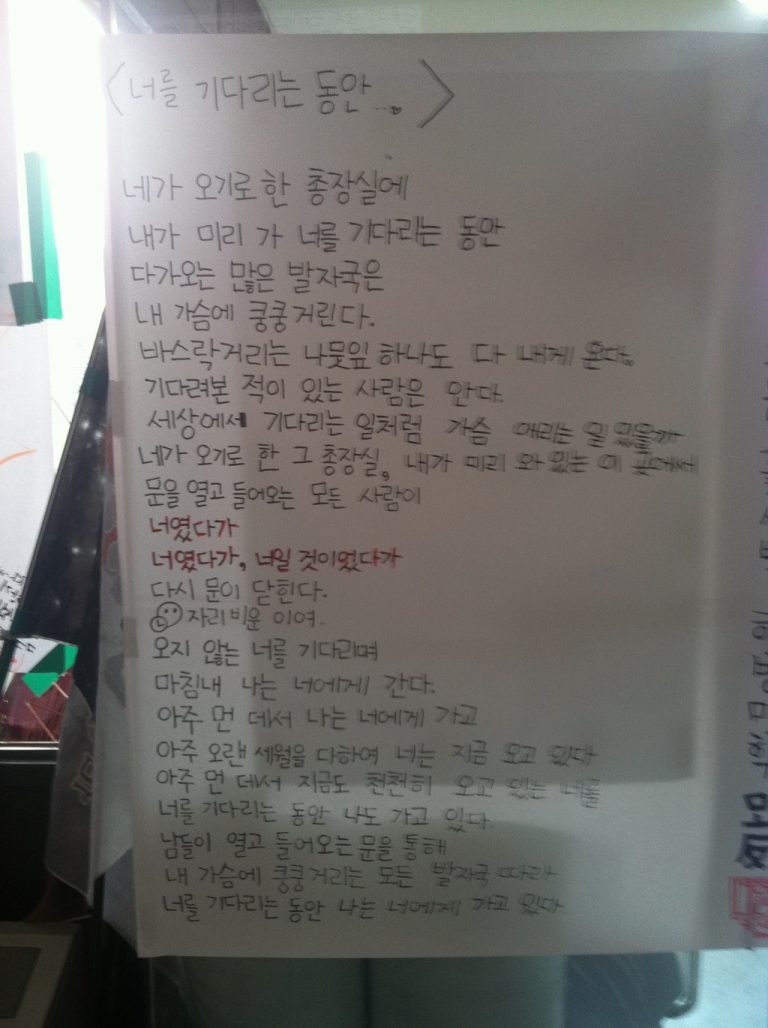 <너를 기다리는 동안...>
네가 오기로 한 총장실에
내가 미리 가 너를 기다리는 동안
다가오는 많은 발자국은
내 가슴에 쿵쿵거린다.
바스락거리는 나뭇잎 하나도 다 내게 온다.
기다려본 적이 있는 사람은 안다.
세상에서 기다리는 일처럼 가슴 애리는 일 있을까
네가 오기로 한 그 총장실, 내가 미리 와 있는 이 곳에서
문을 열고 들어오는 모든 사람이
너였다가
너였다가, 너일 것이었다가
다시 문이 닫힌다.
자리비운 이여
오지 않는 너를 기다리며
마침내 나는 너에게 간다.
아주 먼 데서 나는 너에게 가고
아주 오랜 세월을 다하여 너는 지금 오고 있다
아주 먼 데서 지금도 천천히 오고 있는 너를
너를 기다리는 동안 나도 가고 있다.
남들이 열고 들어오는 문을 통해
내 가슴에 쿵쿵거리는 모든 발자국 따라
너를 기다리는 동안 나는 너에게 가고 있다